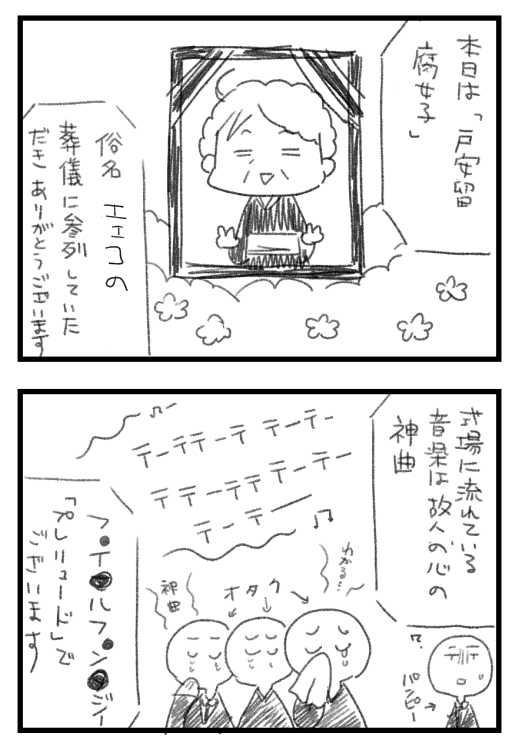 本日は「戸安留
腐女子」
俗名 エエコの
葬儀に参列していた
だきありがとうございます
式場に流れている
音楽は故人の心の
神曲
テーテテーテ テーテー
テテーテテ テーテー
テーテー
わかる…
オタク
神曲
パンピー
フ●イ●ルフ●ン●ジー
「プレリュード」で
ございます